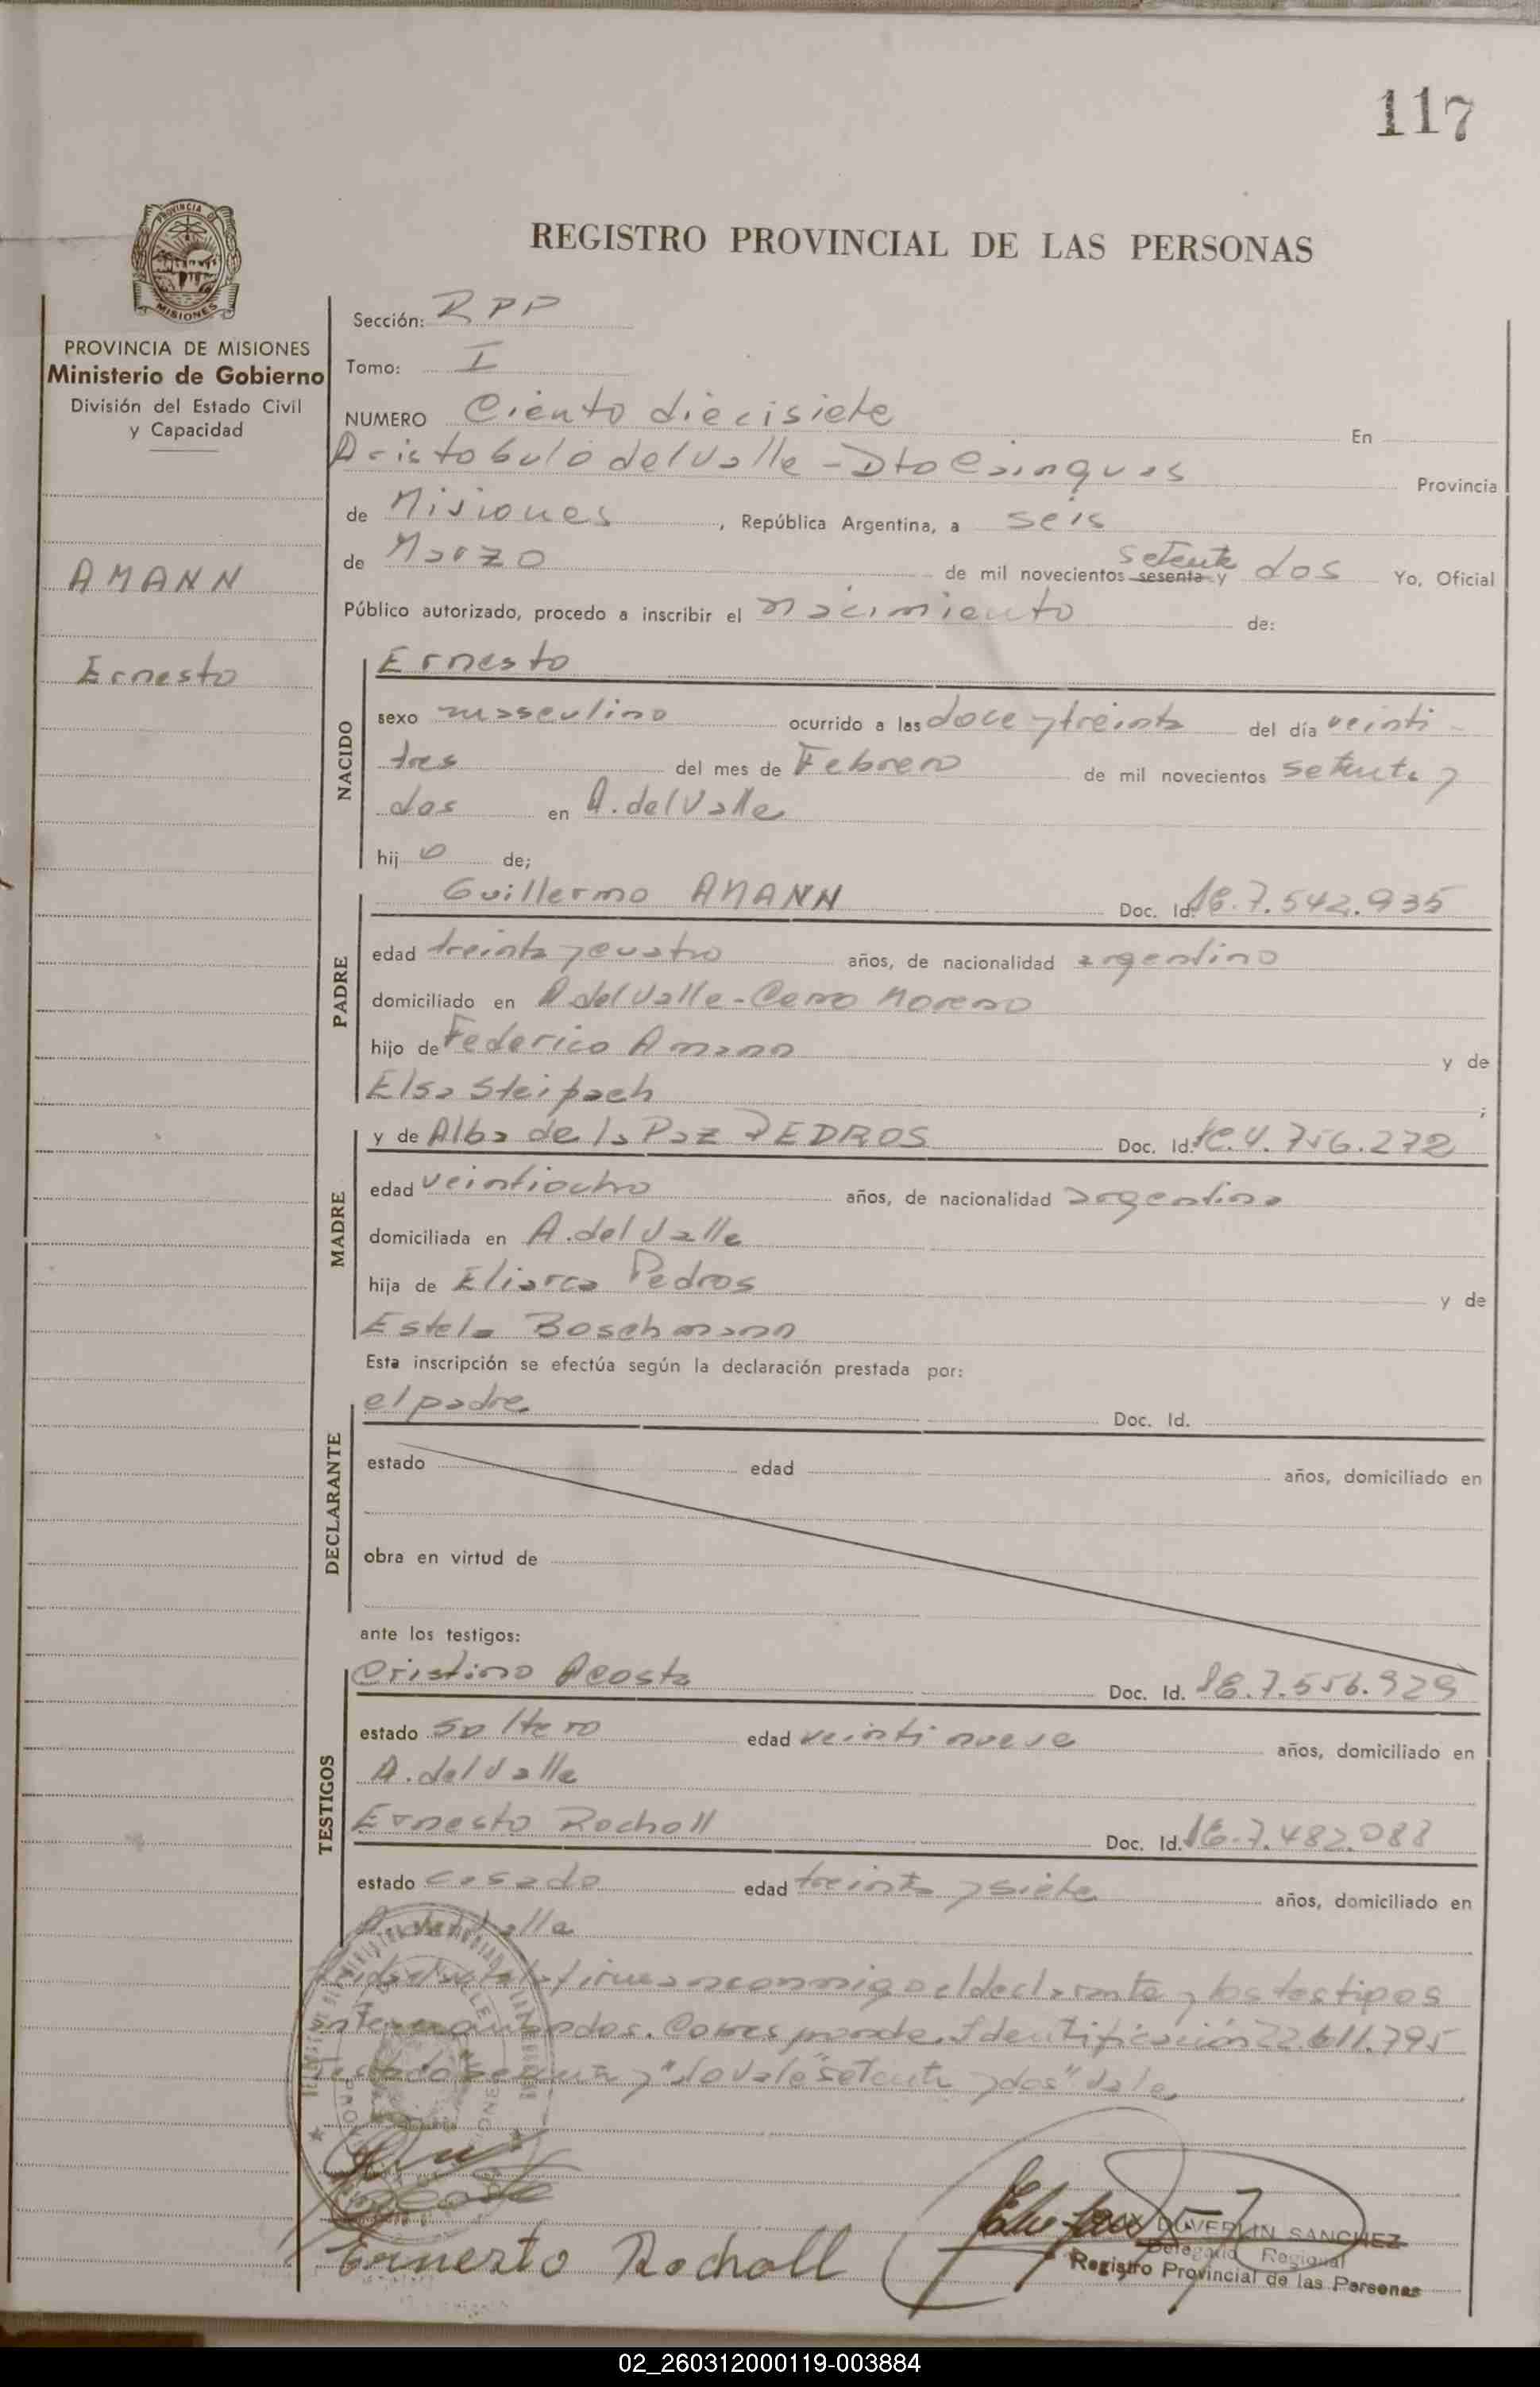 117
REGISTRO PROVINCIAL DE LAS PERSONAS
PROVINCIA DE MISIONES
PROVINCIA DE MISIONES
Ministerio de Gobierno
División del Estado Civil
y Capacidad
AMANN
Ernesto
Sección: RPP
Tomo: I
NUMERO Ciento diecisiete En
Aristobulo del Valle - Dto Cainguas Provincia
de Misiones, República Argentina, a seis
setenta
de Marzo de mil novecientos sesenta y dos Yo, Oficial
Público autorizado, procedo a inscribir el nacimiento de:
NACIDO
Ernesto
sexo masculino ocurrido a las doce y treinta del día veinti-
tres del mes de Febrero de mil novecientos setenta y
dos en A. del Valle
hijo de;
PADRE
Guillermo AMANN Doc. Id. 7.542.935
edad treinta y cuatro años, de nacionalidad argentino
domiciliado en A del Valle - Cerro Moreno
hijo de Federico Amann y de
Elsa Steipach ;
MADRE
y de Alba de la Paz PEDROS Doc. Id. 4.756.272
edad veintiocho años, de nacionalidad argentina
domiciliada en A. del Valle
hija de Eliarca Pedros y de
Estela Boschmann
Esta inscripción se efectúa según la declaración prestada por:
DECLARANTE
el padre Doc. Id.
estado edad años, domiciliado en
obra en virtud de
ante los testigos:
TESTIGOS
Cristino Acosta Doc. Id. 7.556.929
estado soltero edad veinti nueve años, domiciliado en
A. del Valle
Ernesto Rocholl Doc. Id. 7.482.088
estado casado edad treinta y siete años, domiciliado en
A. del Valle
firman conmigo el declarante y los testigos
Corresponde. Identificación 22.611.795
y "no vale" "setenta y dos" vale
Acosta
Ernesto Rocholl
DUVERLIN SANCHEZ
Delegado Regional
Registro Provincial de las Personas
02_260312000119-003884